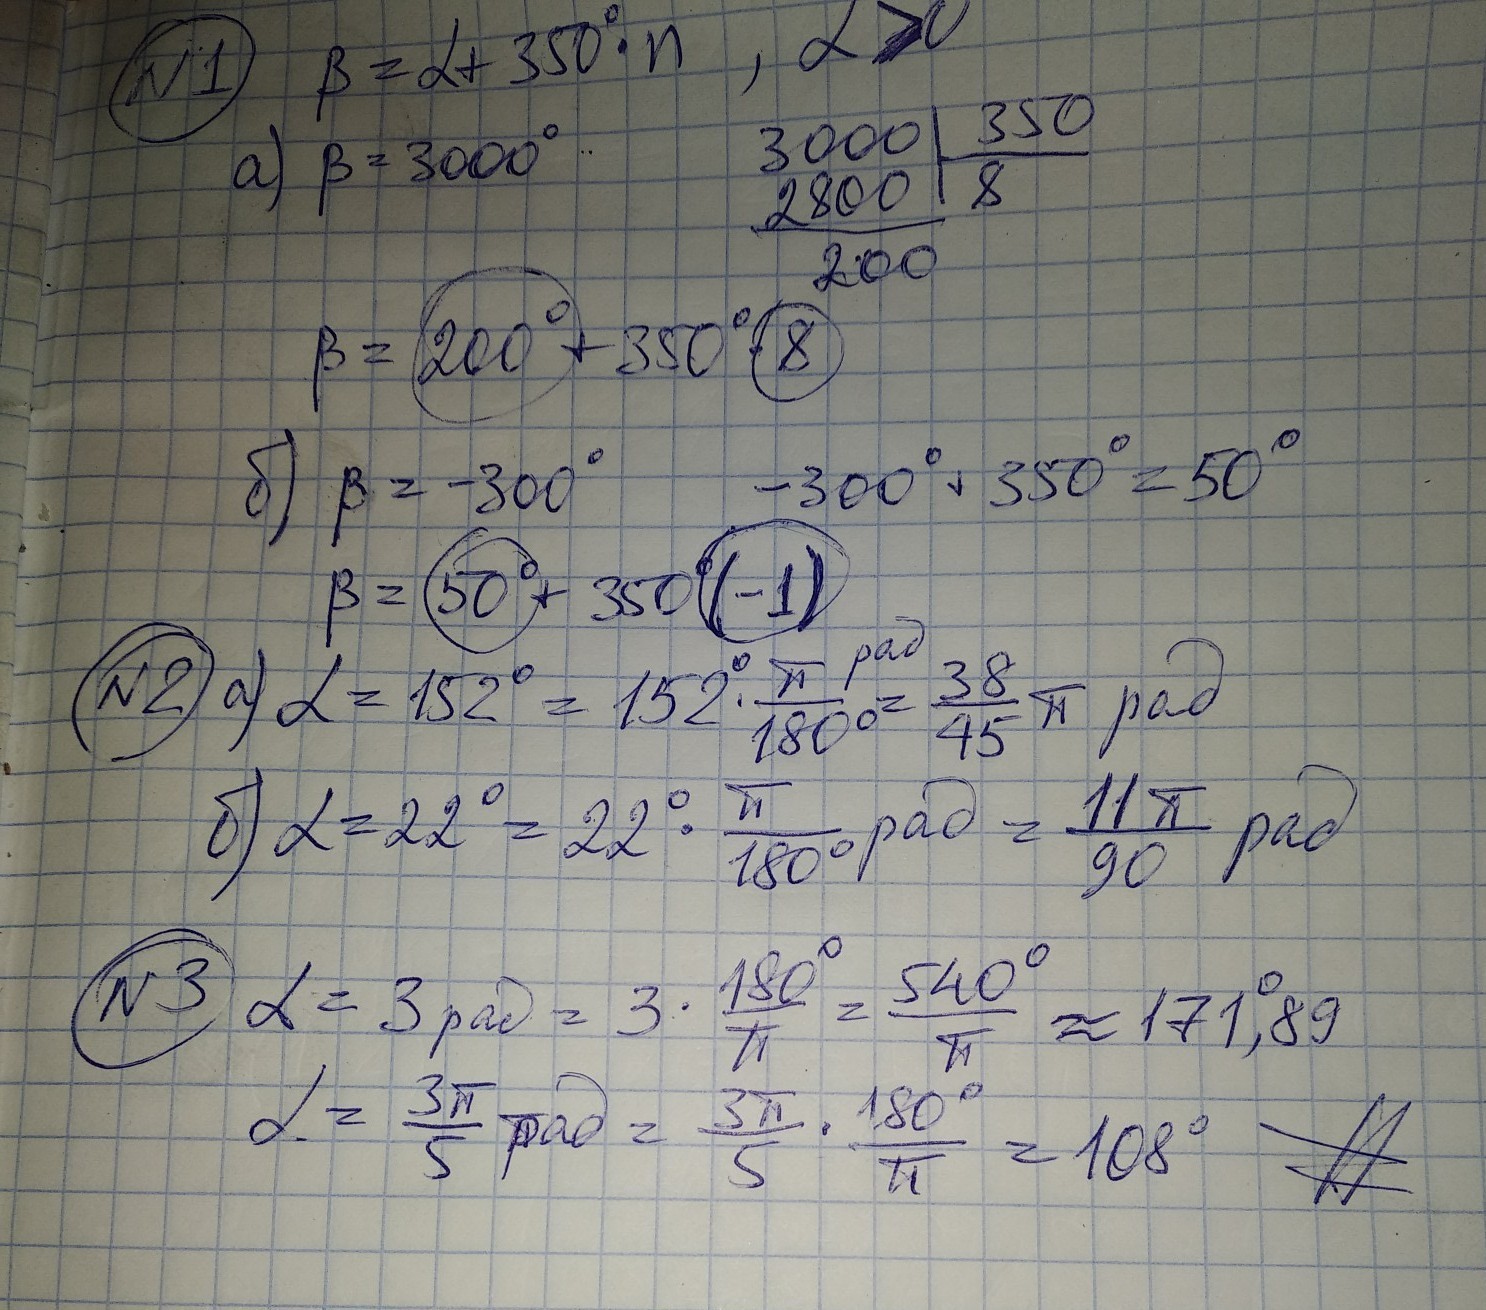 N1 β = α + 350°·n , α > 0
а) β = 3000° 3000 | 350
2800 | 8
200
β = 200° + 350°·8
б) β = -300° -300° + 350° = 50°
β = 50° + 350°(-1)
N2 а) α = 152° = 152°·π/180° рад = 38/45 π рад
б) α = 22° = 22°·π/180° рад = 11π/90 рад
N3 α = 3 рад = 3·180°/π = 540°/π ≈ 171°,89
α = 3π/5 рад = 3π/5·180°/π = 108°